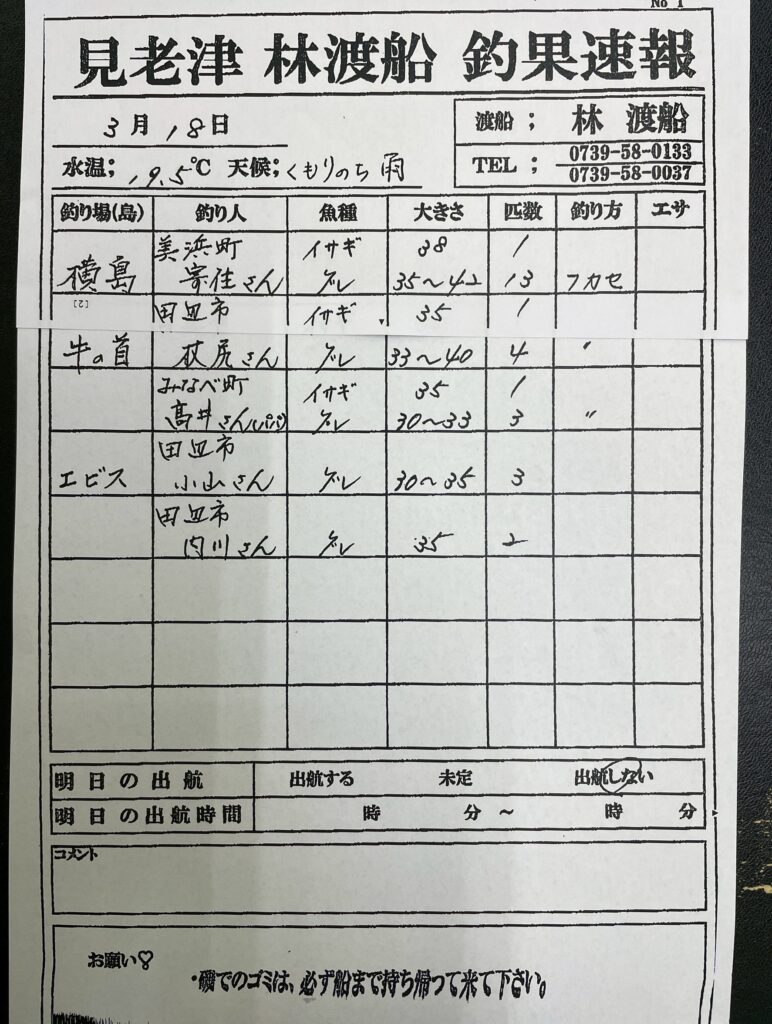 No 1
見老津 林渡船 釣果速報
3月18日
渡船; 林 渡船
水温; 19.5℃ 天候; くもりのち雨
TEL; 0739-58-0133
0739-58-0037
釣り場(島) 釣り人 魚種 大きさ 匹数 釣り方 エサ
美浜町 イサギ 38 1
横島 寄住さん グレ 35〜42 13 フカセ
[2] 田辺市 イサギ 35 1
牛の首 杖尻さん グレ 33〜40 4 〃
みなべ町 イサギ 35 1
髙井さん(パパ) グレ 30〜33 3 〃
田辺市
エビス 小山さん グレ 30〜35 3
田辺市
内川さん グレ 35 2
明日の出航 出航する 未定 出航しない
明日の出航時間 時 分 〜 時 分
コメント
お願い♡
・磯でのゴミは、必ず船まで持ち帰って来て下さい。